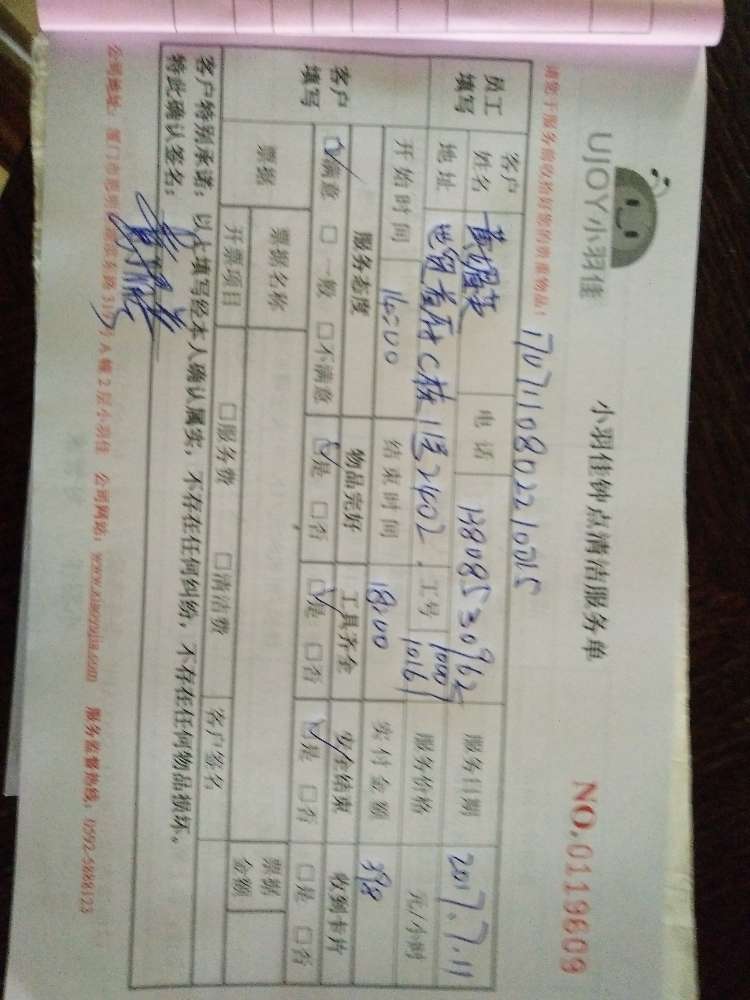 UJOY小羽佳
小羽佳钟点清洁服务单
NO.0119609
请您于服务前收拾好您的贵重物品!
员工填写
客户姓名
电话
服务日期 2017.7.11
地址
工号
服务价格 元/小时
开始时间 16:00
结束时间 18:00
实付金额 398
客户填写
服务态度 物品完好 工具齐全 安全结束 收到卡片
☑满意 □一般 □不满意 ☑是 □否 ☑是 □否 ☑是 □否 □是 □否
票据
票据名称
票据金额
开票项目 □服务费 □清洁费 客户签名
客户特别承诺:以上填写经本人确认属实,不存在任何纠纷,不存在任何物品损坏。
特此确认签名:
公司地址: 2层小羽佳 公司网站:www.xiaoyujia.com 服务监督热线:0592-5888123